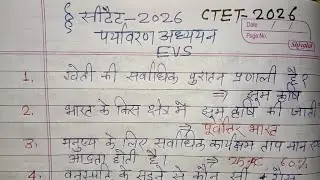 § सीटैट-2026 CTET-2026
Date
Page No.
पर्यावरण अध्ययन
EVS
1. खेती की सर्वाधिक पुरातन प्रणाली है?
⇒ झूम कृषि
2. भारत के किस क्षेत्र में झूम कृषि की जाती
⇒ पूर्वोत्तर भारत
3. मनुष्य के लिए सर्वाधिक कार्यक्षम तापमान
आद्रता होती है। ⇒ 60%
4. वनस्पति के सड़ने से कौन सी गैस